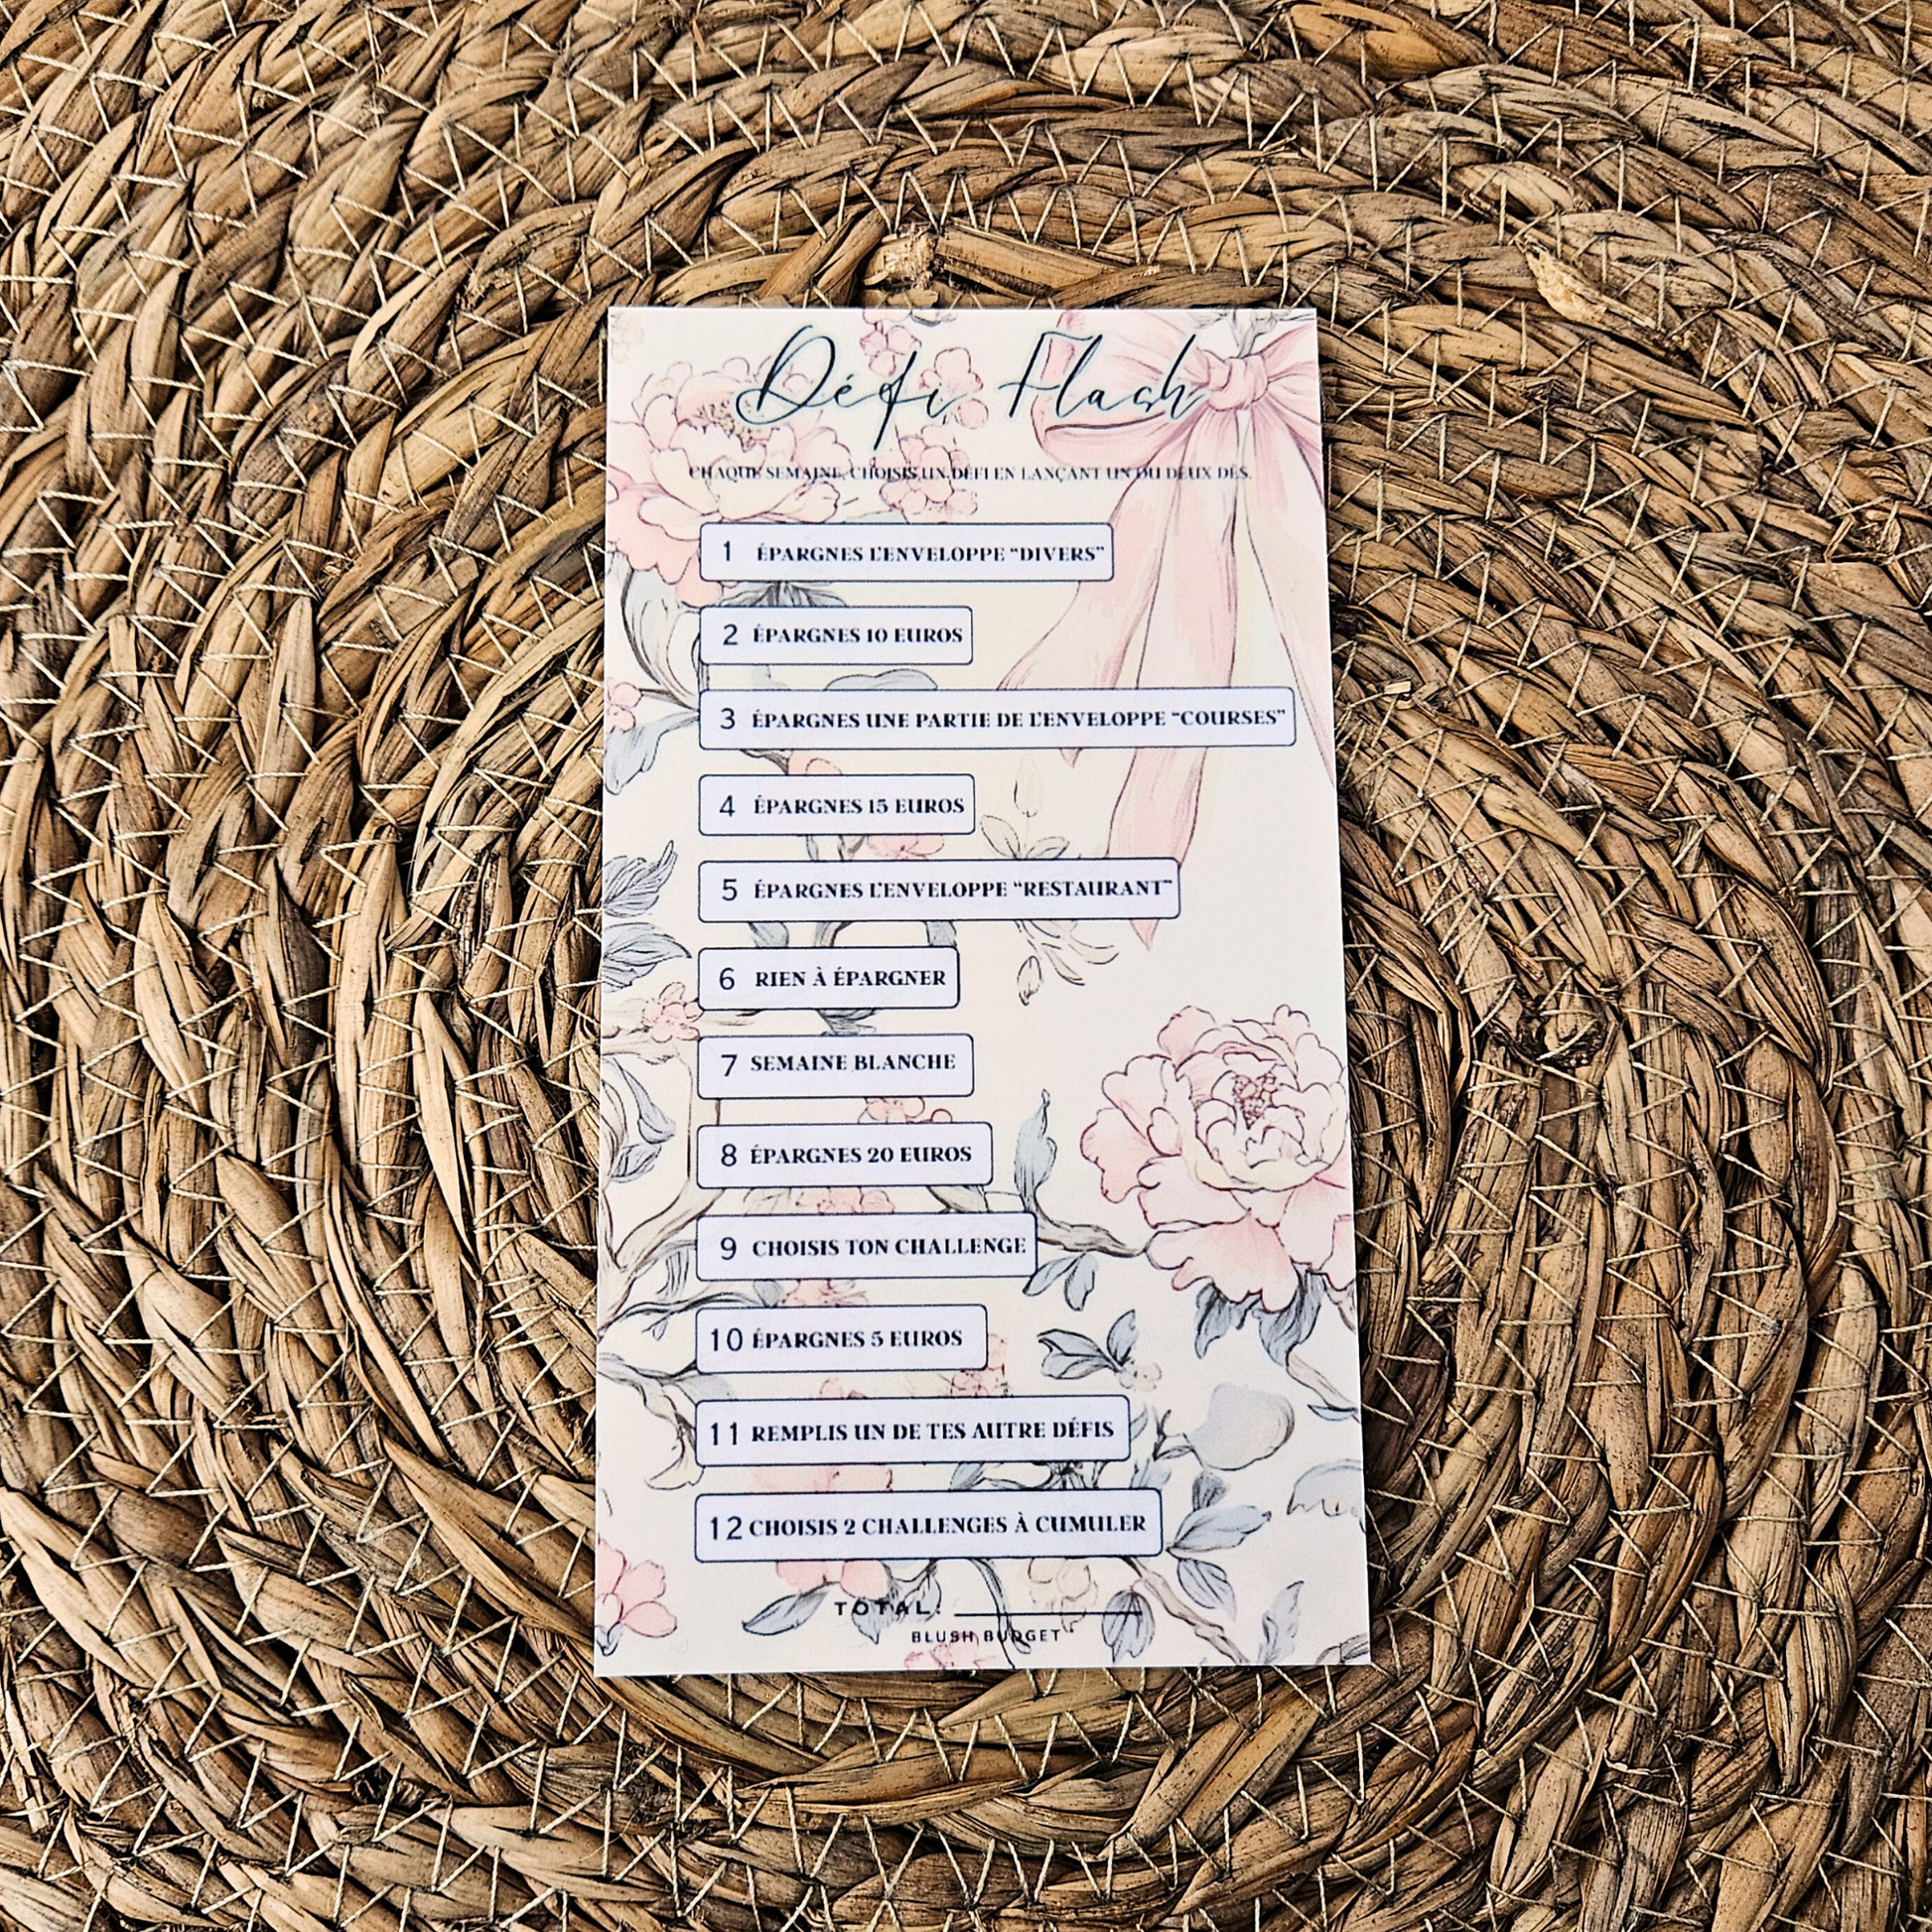 Défi Flash
CHAQUE SEMAINE, CHOISIS UN DÉFI EN LANÇANT UN OU DEUX DÉS.
1 ÉPARGNES L'ENVELOPPE "DIVERS"
2 ÉPARGNES 10 EUROS
3 ÉPARGNES UNE PARTIE DE L'ENVELOPPE "COURSES"
4 ÉPARGNES 15 EUROS
5 ÉPARGNES L'ENVELOPPE "RESTAURANT"
6 RIEN À ÉPARGNER
7 SEMAINE BLANCHE
8 ÉPARGNES 20 EUROS
9 CHOISIS TON CHALLENGE
10 ÉPARGNES 5 EUROS
11 REMPLIS UN DE TES AUTRE DÉFIS
12 CHOISIS 2 CHALLENGES À CUMULER
TOTAL:
BLUSH BUDGET